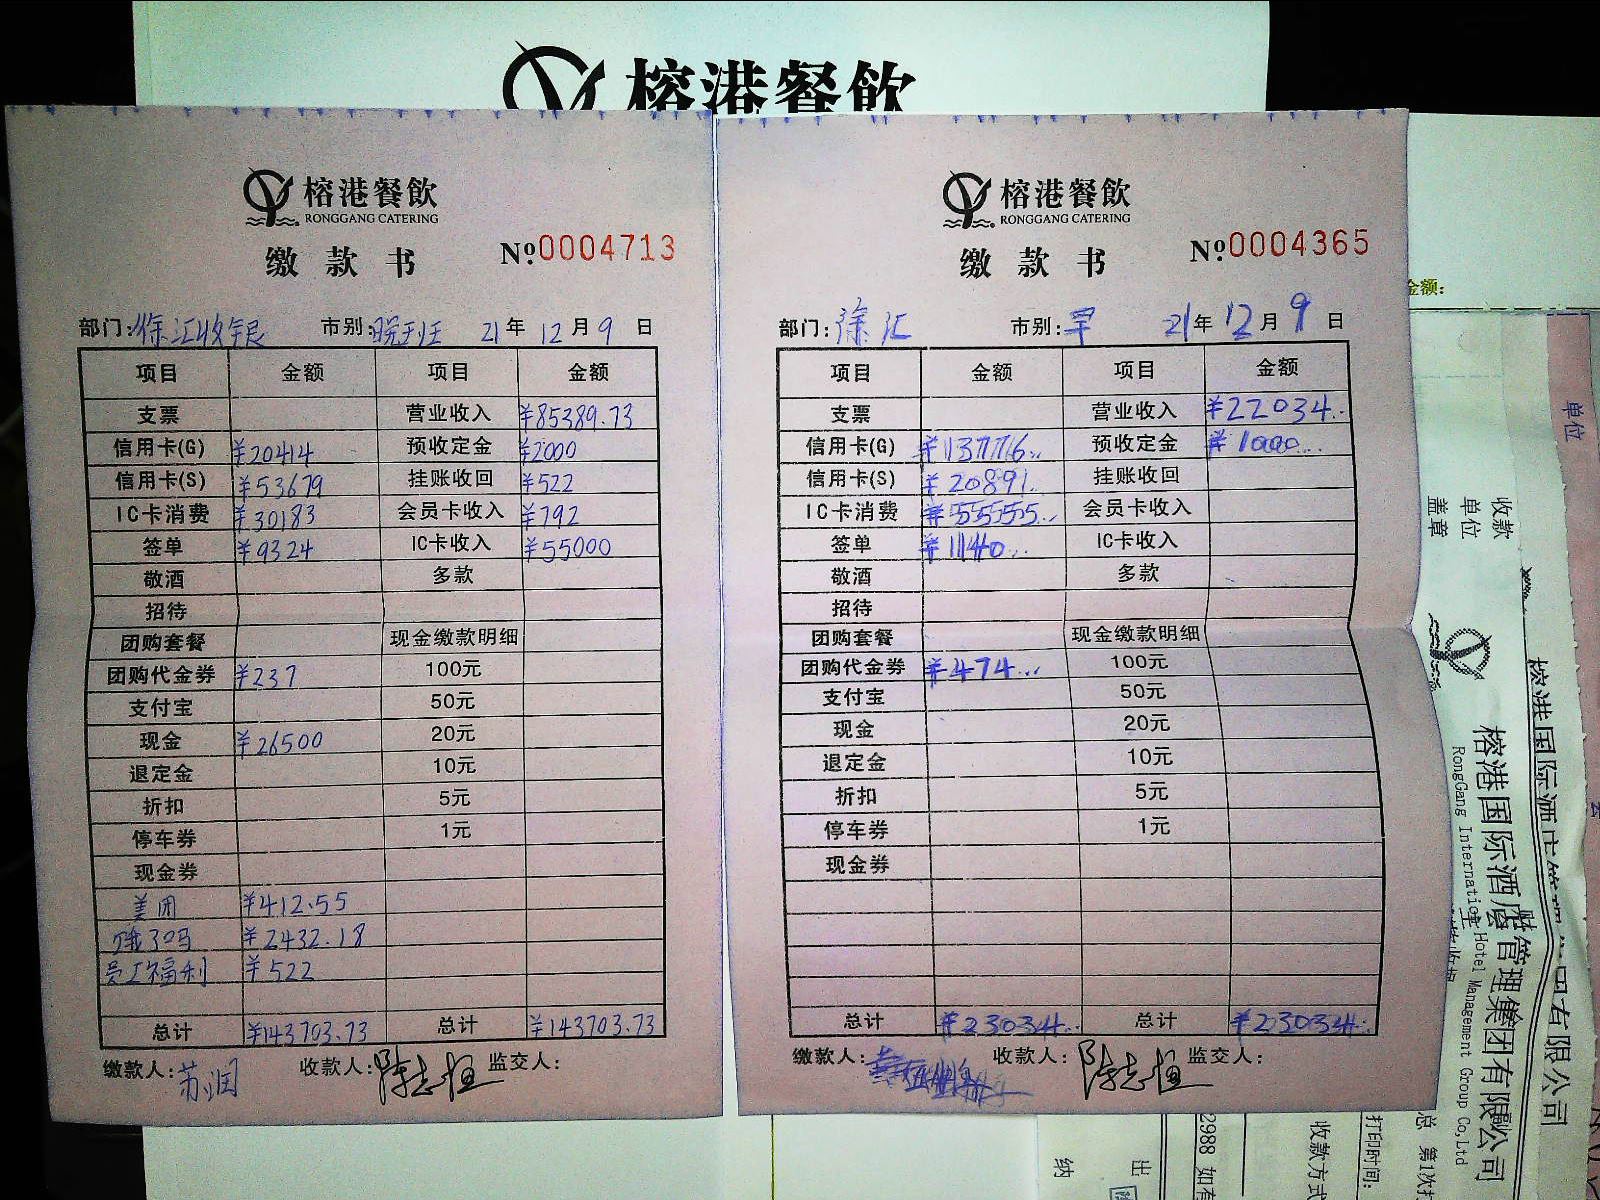 榕港餐飲
榕港餐飲
RONGGANG CATERING
缴款书 №0004713
部门:徐汇收银 市别:晚班 21年 12月 9日
项目 金额 项目 金额
支票 营业收入 ¥85389.73
信用卡(G) ¥20414 预收定金 ¥2000
信用卡(S) ¥53679 挂账收回 ¥522
IC卡消费 ¥30183 会员卡收入 ¥792
签单 ¥9324 IC卡收入 ¥55000
敬酒 多款
招待
团购套餐 现金缴款明细
团购代金券 ¥237 100元
支付宝 50元
现金 ¥26500 20元
退定金 10元
折扣 5元
停车券 1元
现金券
美团 ¥412.55
饿了吗 ¥2432.18
员工福利 ¥522
总计 ¥143703.73 总计 ¥143703.73
缴款人:苏润 收款人:陈志恒 监交人:
榕港餐飲
RONGGANG CATERING
缴款书 №0004365
部门:徐汇 市别:早 21年 12月 9日
项目 金额 项目 金额
支票 营业收入 ¥22034.
信用卡(G) 预收定金 ¥1000
信用卡(S) ¥20891. 挂账收回
IC卡消费 会员卡收入
签单 ¥1140 IC卡收入
敬酒 多款
招待
团购套餐 现金缴款明细
团购代金券 ¥474 100元
支付宝 50元
现金 20元
退定金 10元
折扣 5元
停车券 1元
现金券
总计 ¥23034 总计 ¥23034
缴款人: 收款人:陈志恒 监交人:
金额:
单位
收款
单位
盖章
榕港国际酒店管理集团有限公司
RongGang International Hotel Management Group Co,Ltd
有限公司
2988 如有
收款方式
打印时间:
总 第1次打
出
纳